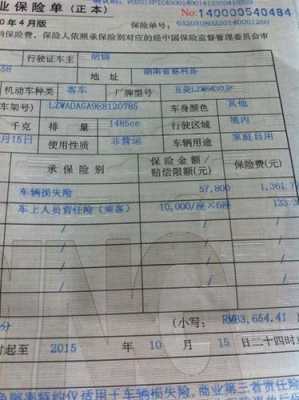 业保险单（正本）
No:140000540484
0年4月版 保险单号:
保险费，保险人依照承保险别对应的经中国保险监督管理委员会审
行驶证车主
地址 湖南省慈利县
机动车种类 客车 厂牌型号
车架号) LZWADAGA968120785 车身颜色 其他
千克 排量 1485cc 行驶区域 境内
月15日 使用性质 非营运 车辆用途 家庭自用
承保险别 保险金额/赔偿限额(元) 保险费(元)
车辆损失险 57,800 1,361.7
车上人员责任险（乘客） 10,000/座×6座 133.
(小写: RMB3,654.41
时起至 2015 年 10 月 15 日二十四时止
仅适用于车辆损失险,商业第三者责任